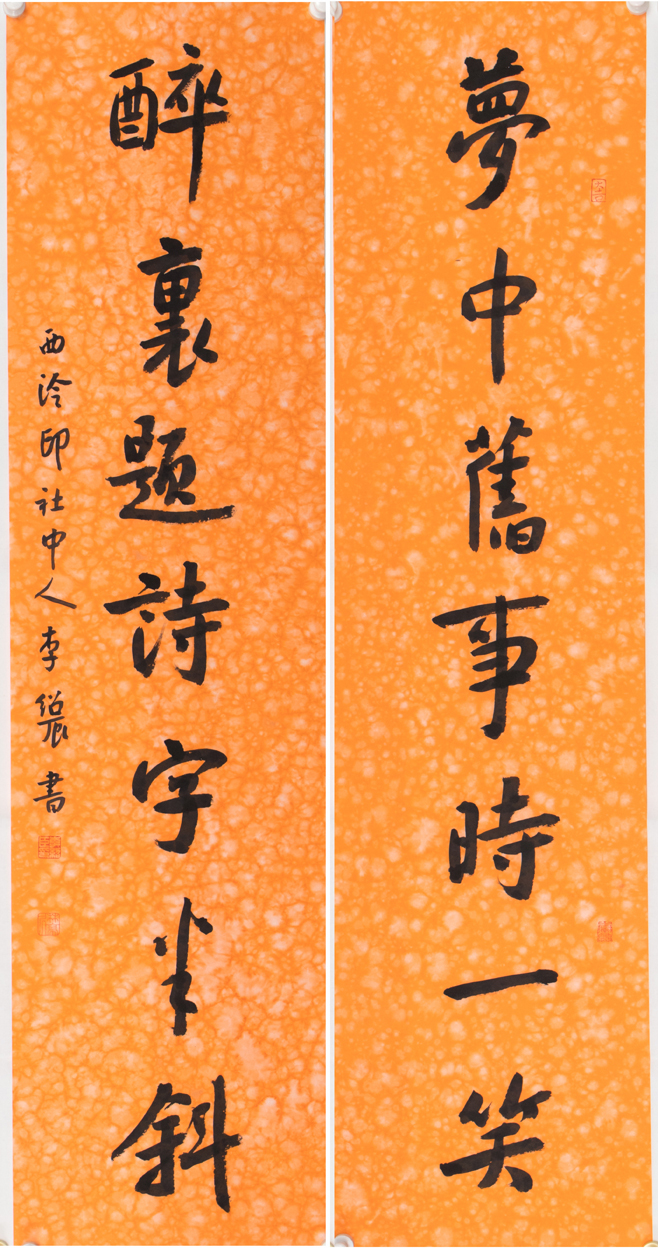 夢中舊事時一笑
醉裏題詩字半斜
西泠印社中人李書